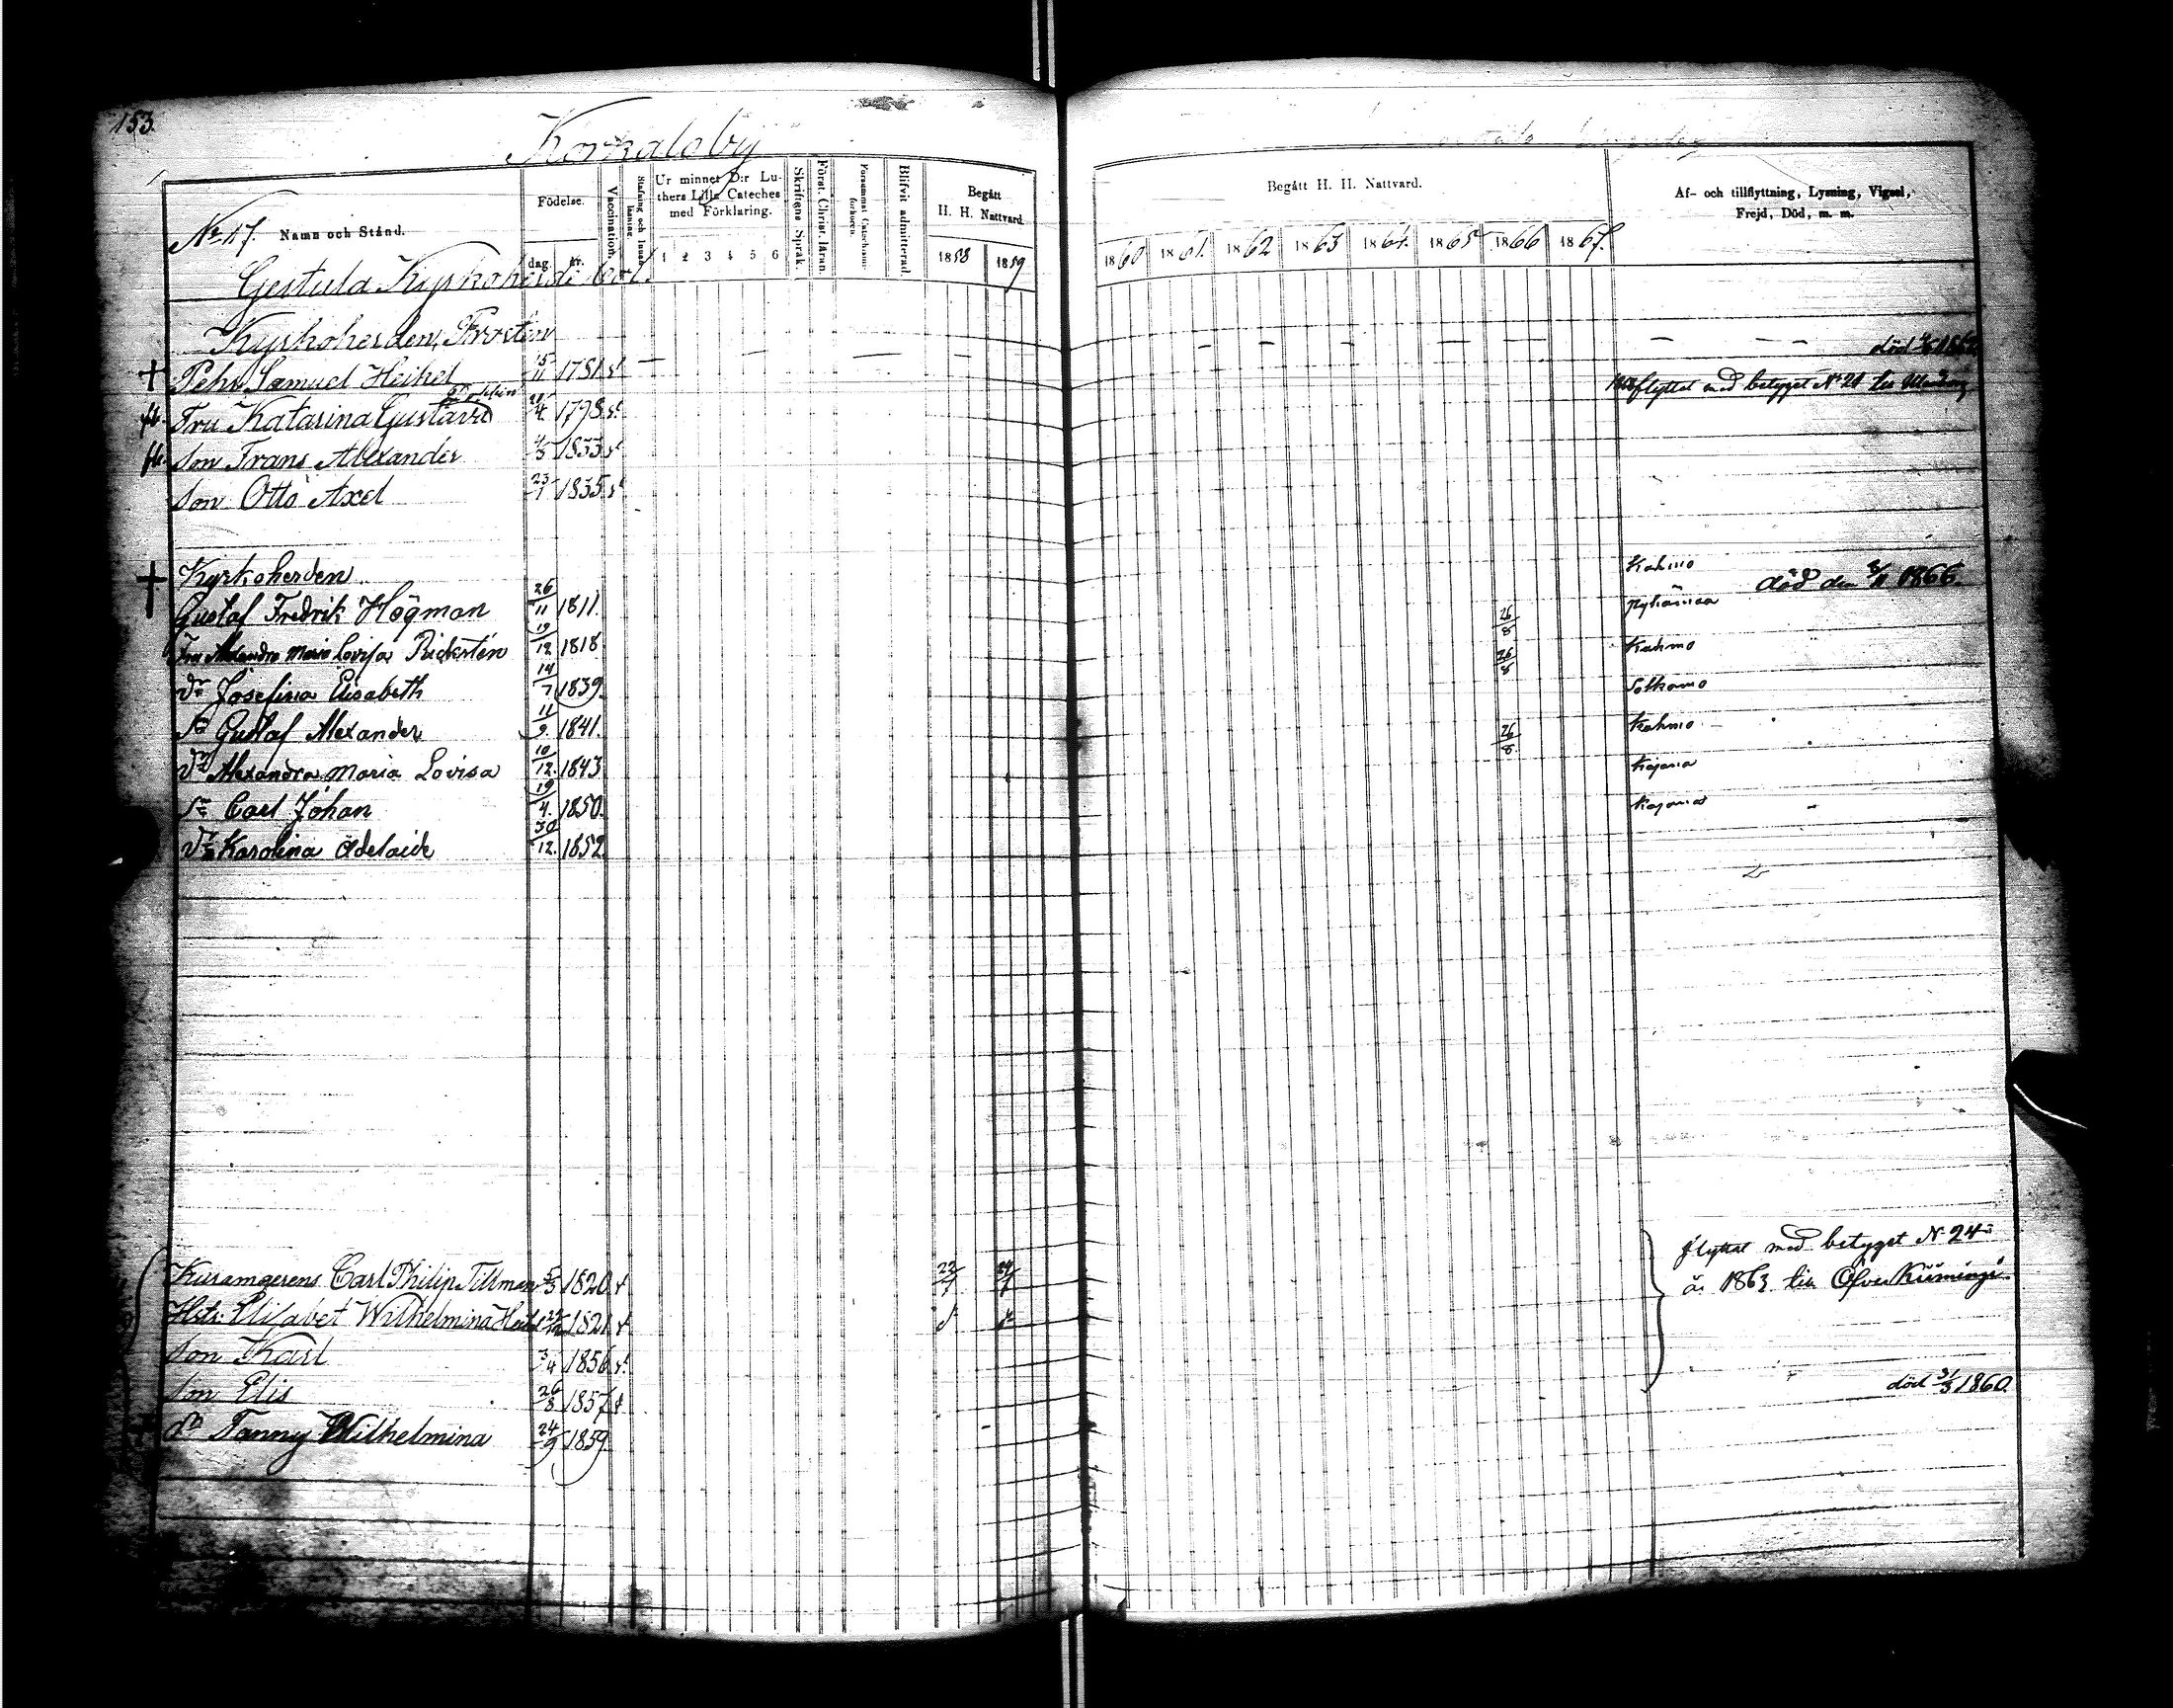 153.
Korkaloby
No 17. Namn och Stånd.
Födelse.
dag. år.
Vaccination.
Stafning och Innanläsning.
Ur minnet D:r Luthers Lilla Cateches med Förklaring.
1 2 3 4 5 6
Skriftens Språk.
Först. Christ. läran.
Försummat Catechismi förhören.
Blifvit admitterad.
Begått H. H. Nattvard.
1858 1859
Begått H. H. Nattvard.
1860 1861. 1862 1863 1864. 1865 1866 1867.
Af- och tillflyttning, Lysning, Vigsel, Frejd, Död, m. m.
Gestula Kyrkoherde bol.
Kyrkoherden, Prosten
† Pehr Samuel Heikel 15/11 1781. död
flyttat med betyget No 21 till
Fru Katarina Gustava 4 1798.
Son Frans Alexander 4/5 1833
Son Otto Axel 23/1 1835
† Kyrkoherden Kuhmo död den 8/11 1866.
Gustaf Fredrik Högman 26/11 1811. 26/8
Fru Alexandra Maria Lovisa 19/12 1818. 26/8 Kuhmo
Dr Josefina Elisabeth 14/7 1839. Sotkamo
Sn Gustaf Alexander 11/9. 1841. 26/8 Kuhmo
Dr Alexandra Maria Lovisa 10/12. 1843 Kajana
Sn Carl Johan 19/4. 1850. Kajana
Dr Karolina Adelaide 30/12. 1852
flyttat med betyget No 24
år 1863 till Öfver Kiiminge.
Carl Philip Tillman 5/3 1820. 22/7 24/7
Hstr: Elisabet Wilhelmina 1821.
Son Karl 3/4 1856.
Son Elis 26/8 1857 död 31/3 1860.
dr Fanny Wilhelmina 24/9 1859.